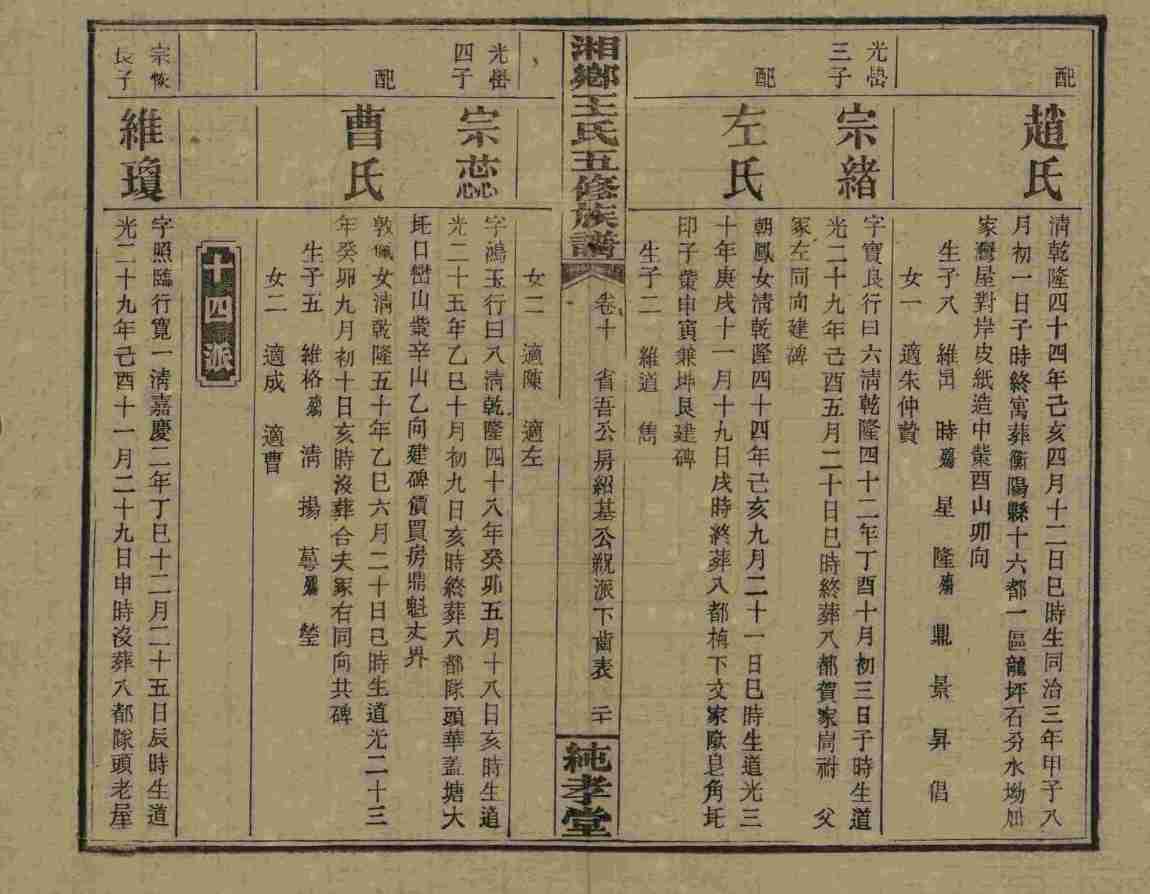 配
趙氏
清乾隆四十四年己亥四月十二日巳時生同治三年甲子八
月初一日子時終寓葬衡陽縣十六都一區龍坪石分水坳屈
家灣屋對岸皮紙造中㙡酉山卯向
生子八 維岀 時殤 星 隆殤 鼎 景 昇 倡
女一 適朱仲贄
光嶨
三子
宗緒
字寶良行曰六清乾隆四十二年丁酉十月初三日子時生道
光二十九年己酉五月二十日巳時終葬八都賀家崗祔 父
冢左同向建碑
配
左氏
朝鳳女清乾隆四十四年己亥九月二十一日巳時生道光三
十年庚戌十一月十九日戌時終葬八都楨下文家歐皂角坵
印子葉申寅兼坤艮建碑
生子二 維道 雋
女二 適陳 適左
湘鄉王氏五修族譜
卷十 省吾公房紹基公覜派下齒表 二十
純孝堂
光嶨
四子
宗蕊
字鴻玉行曰八清乾隆四十八年癸卯五月十八日亥時生道
光二十五年乙巳十月初九日亥時終葬八都隊頭華蓋塘大
坵口巒山葉辛山乙向建碑價買房鼎魁丈界
配
曹氏
敦佩女清乾隆五十年乙巳六月二十日巳時生道光二十三
年癸卯九月初十日亥時沒葬合夫冢右同向共碑
生子五 維格殤 淸 揚 蕚殤 瑩
女二 適成 適曹
十四派
宗恢
長子
維瓊
字照臨行寬一清嘉慶二年丁巳十二月二十五日辰時生道
光二十九年己酉十一月二十九日申時沒葬八都隊頭老屋